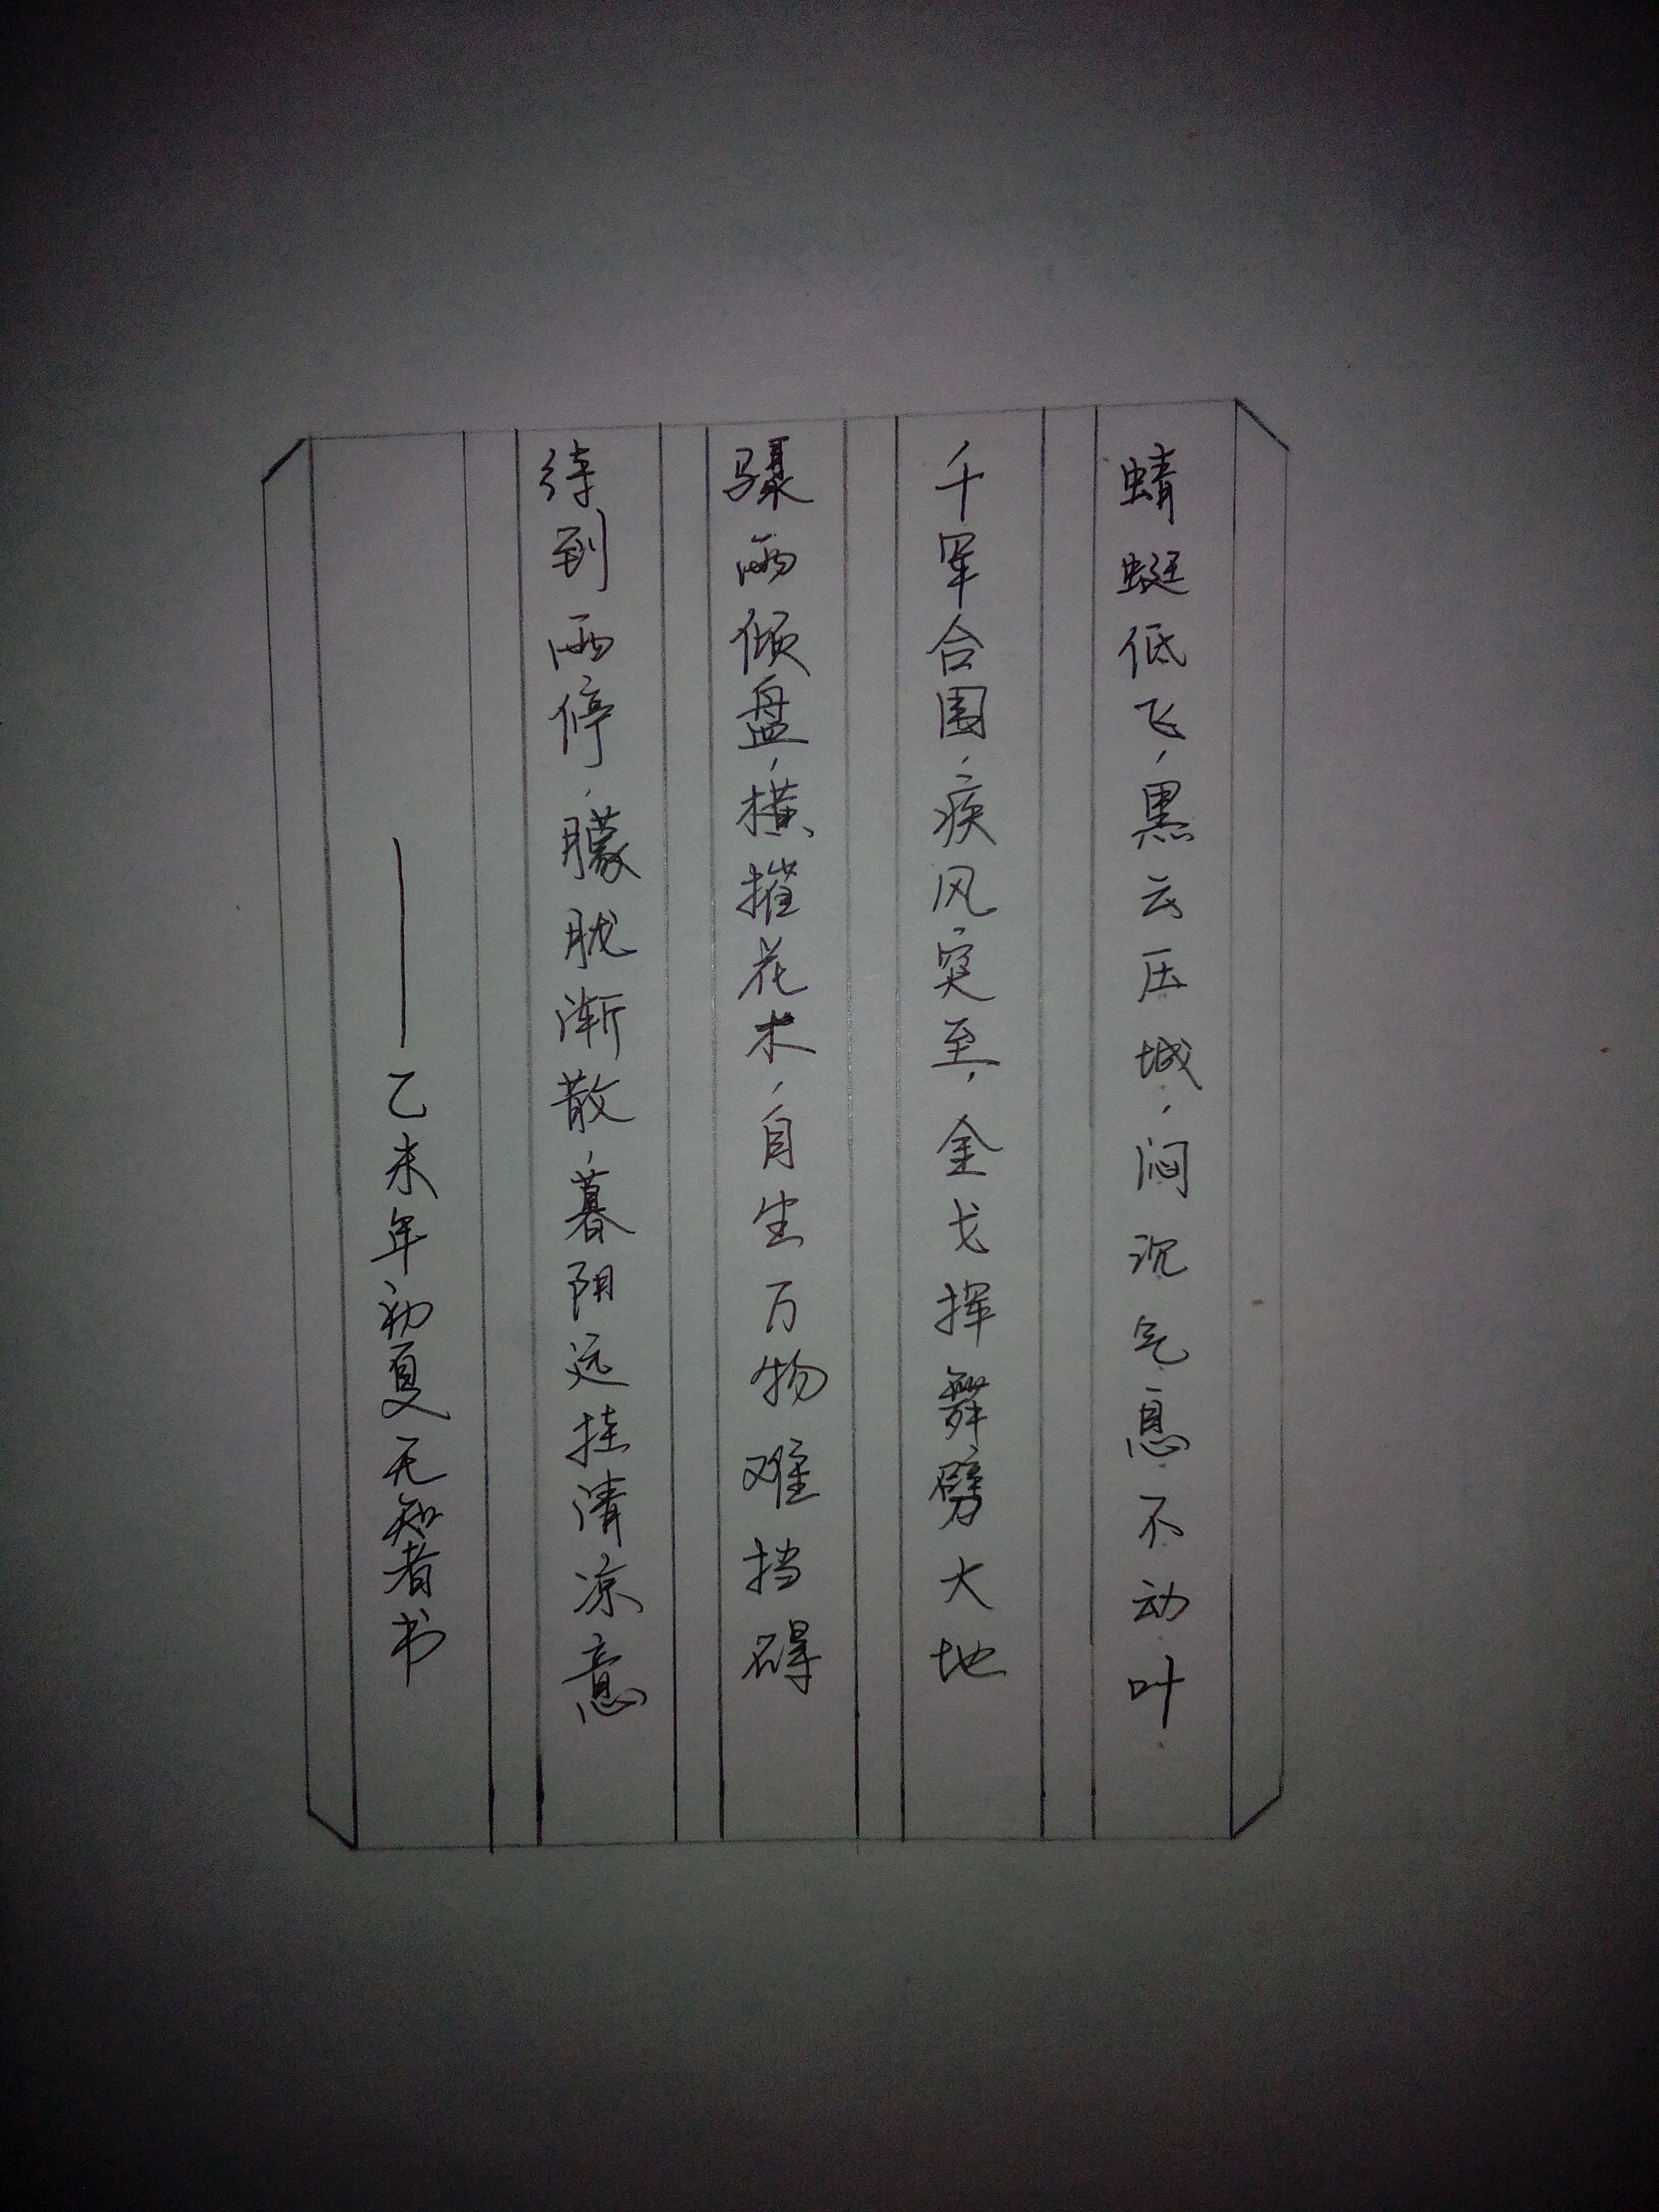 蜻蜓低飞，黑云压城，闷沉气息不动叶
千军合围，疾风突至，金戈挥舞劈大地
骤雨倾盘，横摧花木，自生万物难挡碍
待到雨停，朦胧渐散，暮阴远挂清凉意
——乙未年初夏无知者书